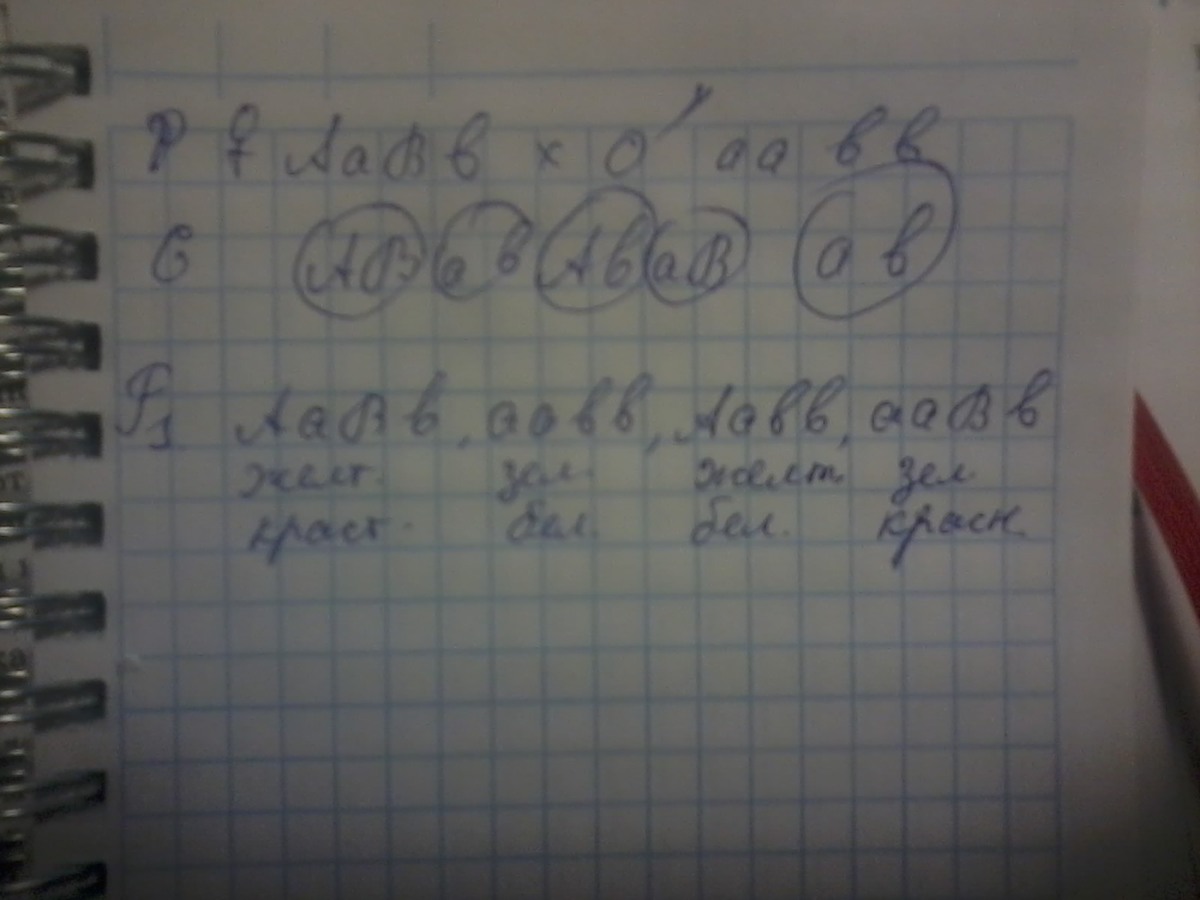 P ♀ АаВв × ♂ аавв
G АВ ав Ав аВ ав
F₁ АаВв, аавв, Аавв, ааВв
желт. зел. желт. зел.
краст. бел. бел. красн.